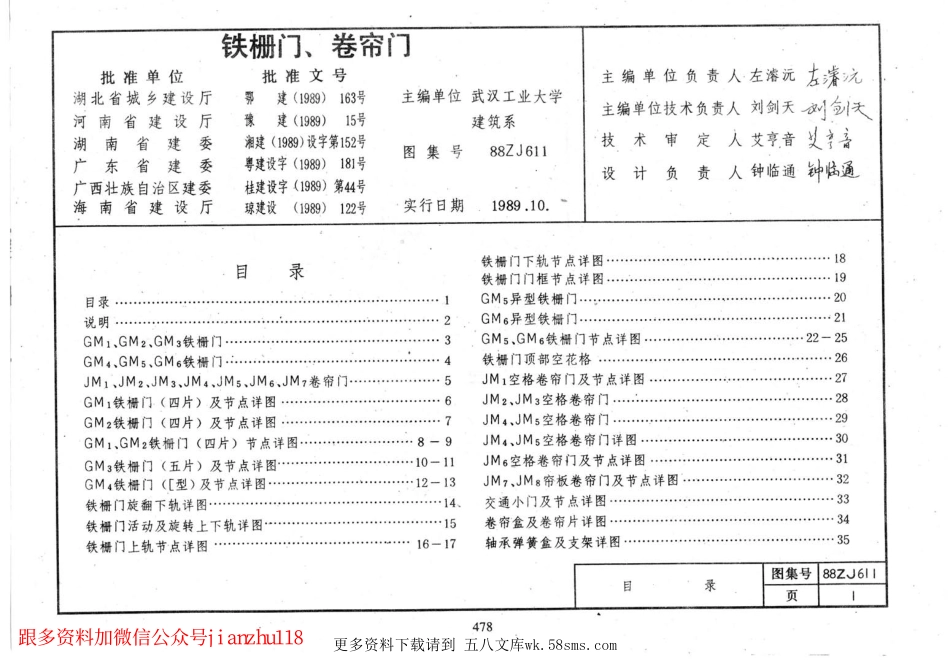 铁栅门、卷帘门
批准单位 批准文号
湖北省城乡建设厅 鄂 建(1989) 163号
河南省建设厅 豫 建(1989) 15号
湖南省建委 湘建(1989)设字第152号
广东省建委 粤建设字(1989) 181号
广西壮族自治区建委 桂建设字(1989)第44号
海南省建设厅 琼建设 (1989) 122号
主编单位 武汉工业大学
建筑系
图集号 88ZJ611
实行日期 1989.10.
主编单位负责人 左濬沅 左濬沅
主编单位技术负责人 刘剑天 刘剑天
技术审定人 艾亨音 艾亨音
设计负责人 钟临通 钟临通
目 录
目录 1
说明 2
GM1、GM2、GM3铁栅门 3
GM4、GM5、GM6铁栅门 4
JM1、JM2、JM3、JM4、JM5、JM6、JM7卷帘门 5
GM1铁栅门(四片)及节点详图 6
GM2铁栅门(四片)及节点详图 7
GM1、GM2铁栅门(四片)节点详图 8-9
GM3铁栅门(五片)及节点详图 10-11
GM4铁栅门([型)及节点详图 12-13
铁栅门旋翻下轨详图 14
铁栅门活动及旋转上下轨详图 15
铁栅门上轨节点详图 16-17
铁栅门下轨节点详图 18
铁栅门门框节点详图 19
GM5异型铁栅门 20
GM6异型铁栅门 21
GM5、GM6铁栅门节点详图 22-25
铁栅门顶部空花格 26
JM1空格卷帘门及节点详图 27
JM2、JM3空格卷帘门 28
JM4、JM5空格卷帘门 29
JM4、JM5空格卷帘门详图 30
JM6空格卷帘门及节点详图 31
JM7、JM8帘板卷帘门及节点详图 32
交通小门及节点详图 33
卷帘盒及卷帘片详图 34
轴承弹簧盒及支架详图 35
目 录 图集号 88ZJ611
页 1
478
跟多资料加微信公众号jianzhu118
更多资料下载请到 五八文库wk.58sms.com